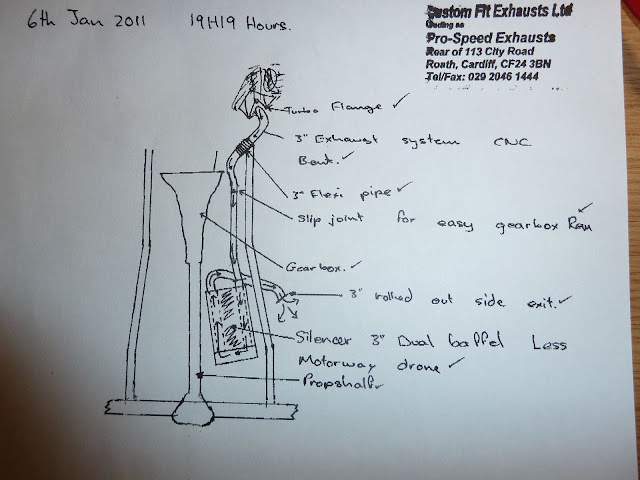 6th Jan 2011 19H19 Hours.
Custom Fit Exhausts Ltd
Pro-Speed Exhausts
Rear of 113 City Road
Roath, Cardiff, CF24 3BN
Tel/Fax: 029 2046 1444
Turbo Flange ✓
3" Exhaust system CNC
Bent. ✓
3" Flexi pipe ✓
Slip joint for easy gearbox Rem ✓
Gearbox. ✓
3" rolled out side exit. ✓
Silencer 3" Dual baffel Less
Motorway drone ✓
Propshaft